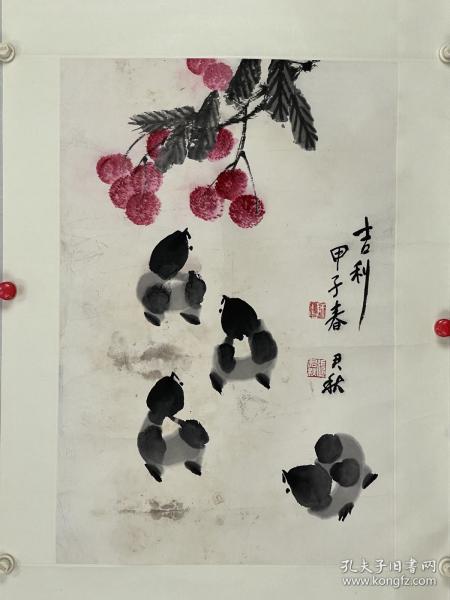 吉利
甲子春
尹秋
孔夫子旧书网
www.kongfz.com